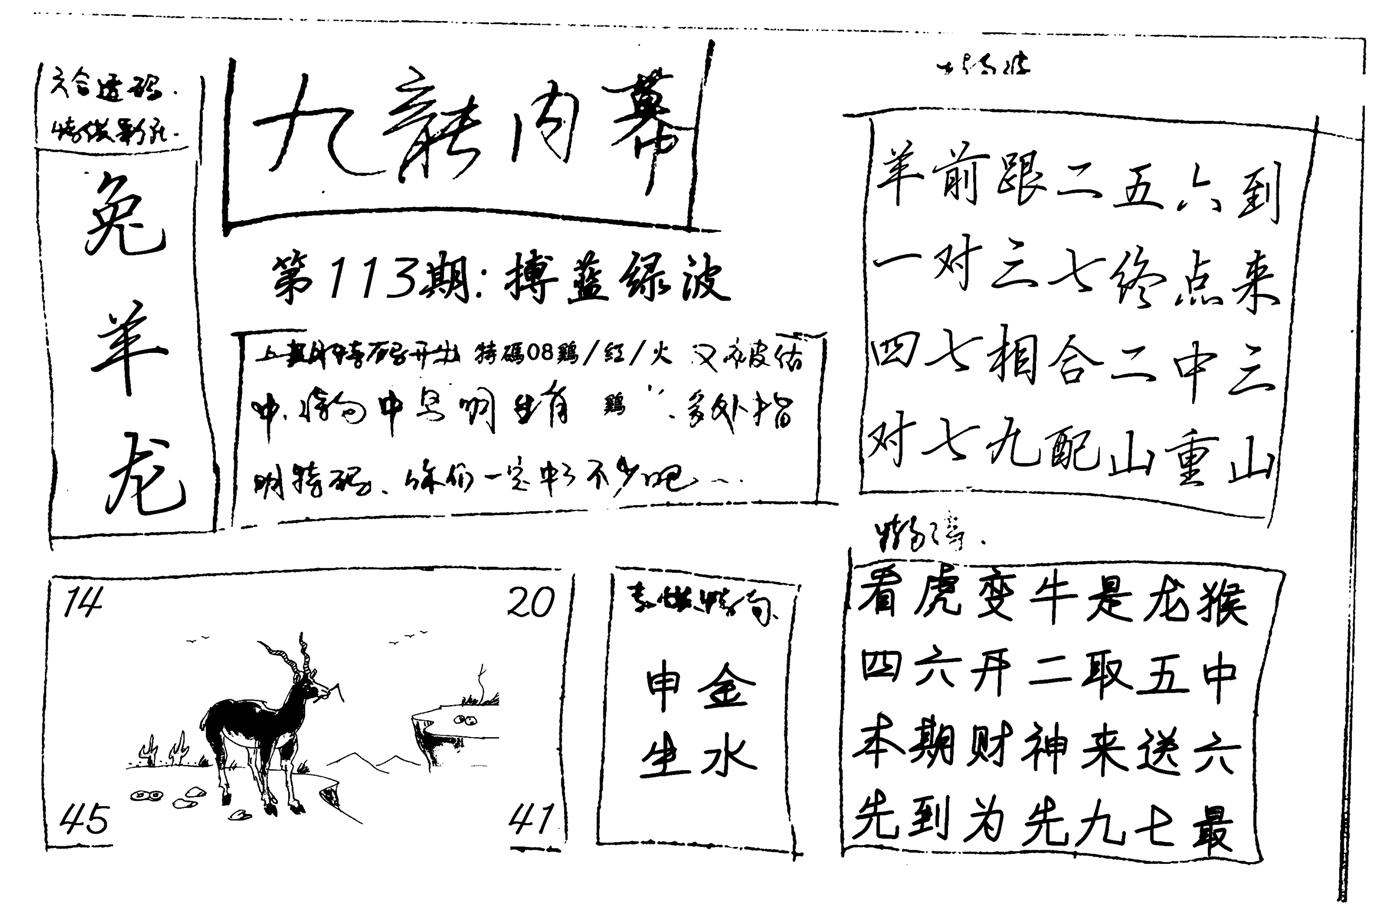 六合透码.
兔
羊
龙
九龍内幕
第113期:搏蓝绿波
上期特码开出 特碼08鷄/红/火 又被估
中.特句中 明 生肖 鷄".多处指
明特码.你们一定中了不少吧…
羊前跟二五六到
一对三七终点来
四七相合二中三
对七九配山重山
看虎变牛是龙猴
四六开二取五中
本期财神来送六
先到为先九七最
14
20
45
41
申金
生水